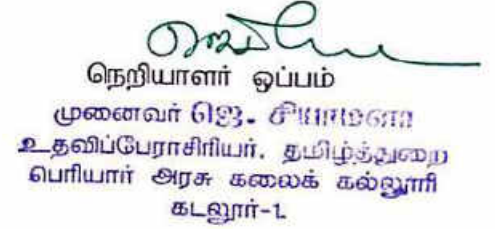 நெறியாளர் ஒப்பம்
முனைவர் ஜெ. சியாமளா
உதவிப்பேராசிரியர். தமிழ்த்துறை
பெரியார் அரசு கலைக் கல்லூரி
கடலூர்-1.